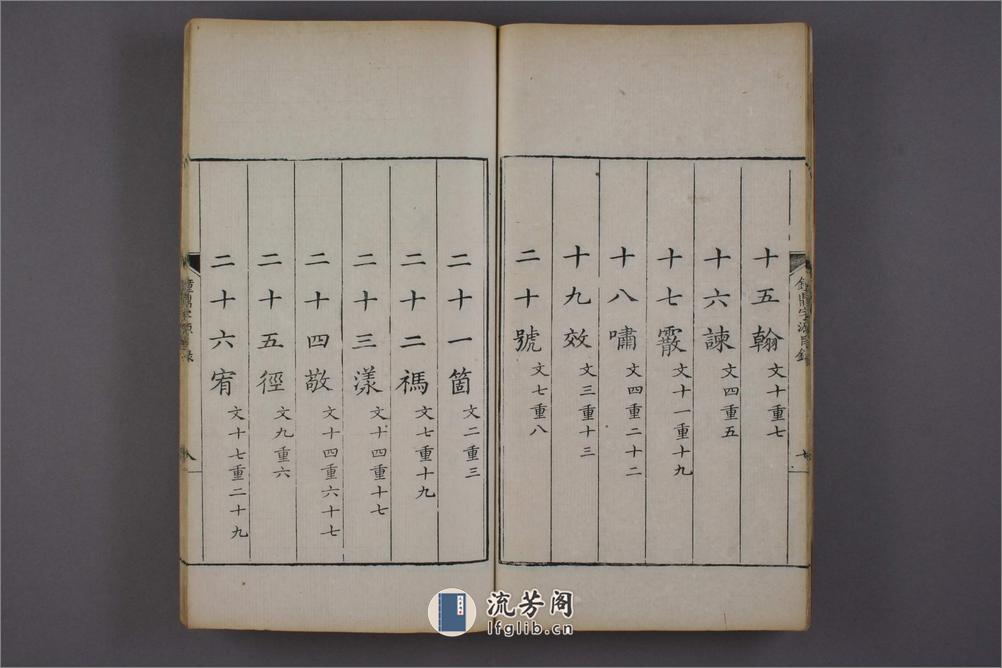 鐘鼎字源目錄
七
十五翰文十重七
十六諫文四重五
十七霰文十一重十九
十八嘯文四重二十二
十九效文三重十三
二十號文七重八
二十一箇文二重三
二十二禡文七重十九
二十三漾文十四重十七
二十四敬文十四重六十七
二十五徑文九重六
二十六宥文十七重二十九
鐘鼎字源目錄
八
流芳阁
lfglib.cn